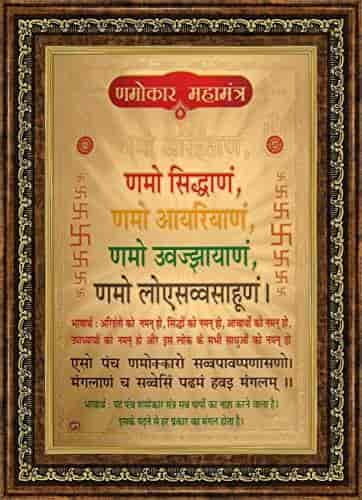 णमोकार महामंत्र
णमो अरिहंताणं,
णमो सिद्धाणं,
णमो आयरियाणं,
णमो उवज्झायाणं,
णमो लोएसव्वसाहूणं।
भावार्थ : अरिहंतो को नमन् हो, सिद्धों को नमन् हो, आचार्यों को नमन् हो,
उपाध्यायों को नमन् हो और इस लोक के सभी साधुओं को नमन् हो
एसो पंच णमोक्कारो सव्वपावप्पणासणो।
मंगलाणं च सव्वेसिं पढमं हवइ मंगलम् ॥
भावार्थ : यह पंच णमोकार मंत्र सब पापों का नाश करने वाला है।
इसके पढ़ने से हर प्रकार का मंगल होता है।